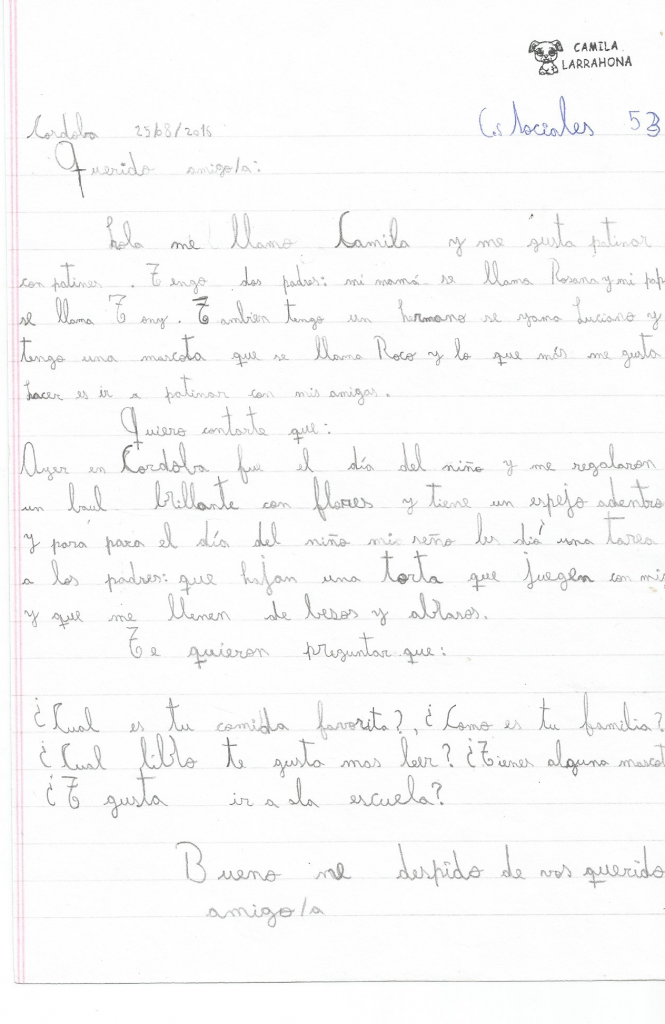 CAMILA
LARRAHONA
Cs Sociales 5B
Cordoba 25/08/2016
Querido amigo/a:
Hola me llamo Camila y me gusta patinar
con patines. Tengo dos padres: mi mamá se llama Rosana y mi pap
se llama Tony. Tambien tengo un hermano se yama Luciano y
tengo una mascota que se llama Roco y lo que más me gusta
hacer es ir a patinar con mis amigas.
Quiero contarte que:
Ayer en Cordoba fue el día del niño y me regalaron
un baul brillante con flores y tiene un espejo adentro
y pará para el día del niño mi seño les dió una tarea
a los padres: que hajan una torta que juegen con mi
y que me llenen de besos y abrasos.
Te quieron preguntar que:
¿Cual es tu comida favorita?, ¿Como es tu familia?
¿Cual libro te gusta mas leer? ¿Tienes alguna mascot
¿T gusta ir a ala escuela?
Bueno me despido de vos querido
amigo/a